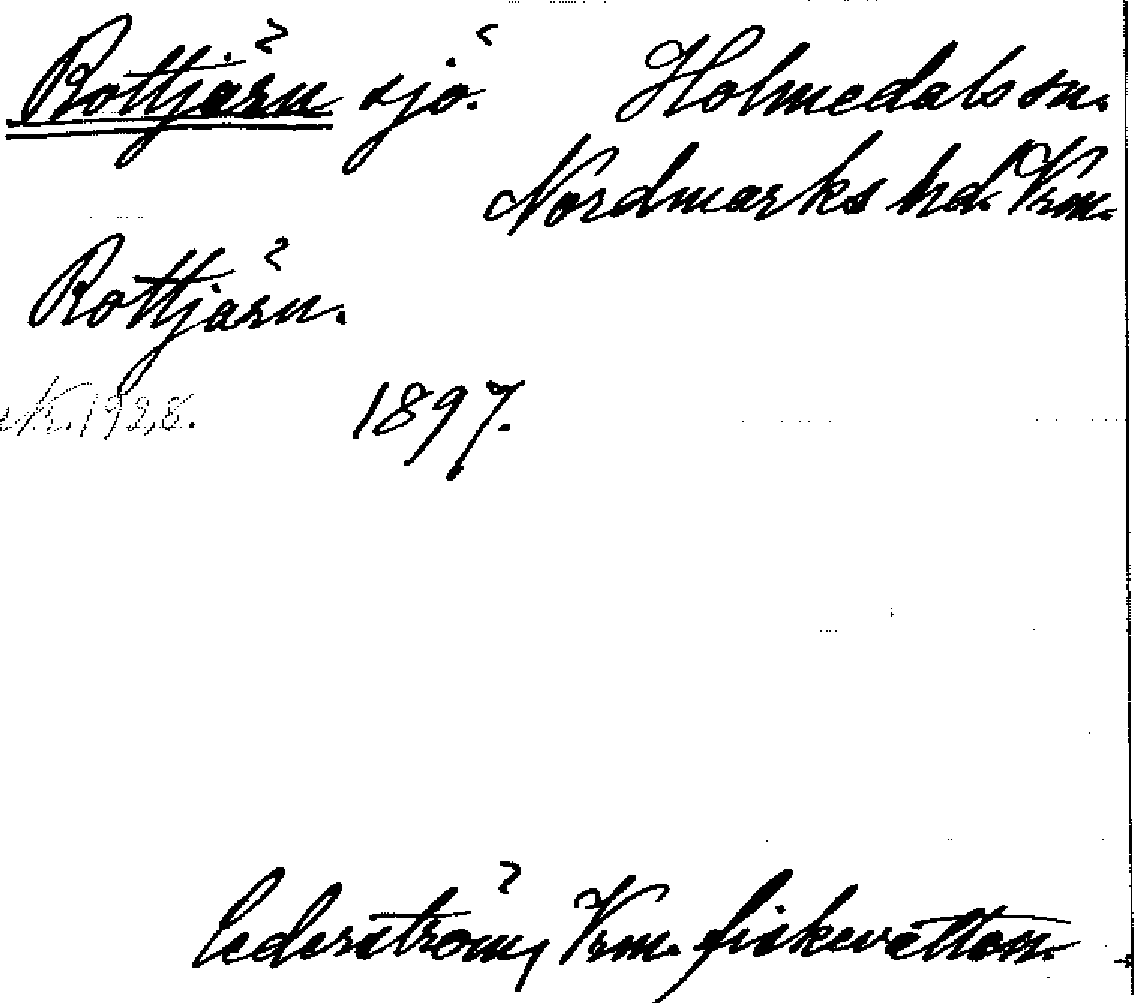 Rottjärn sjö. Holmedals sn.
Nordmarks hd. Vrm.
Rottjärn.
1928. 1897.
Cederström, Vrm. fiskevatten.